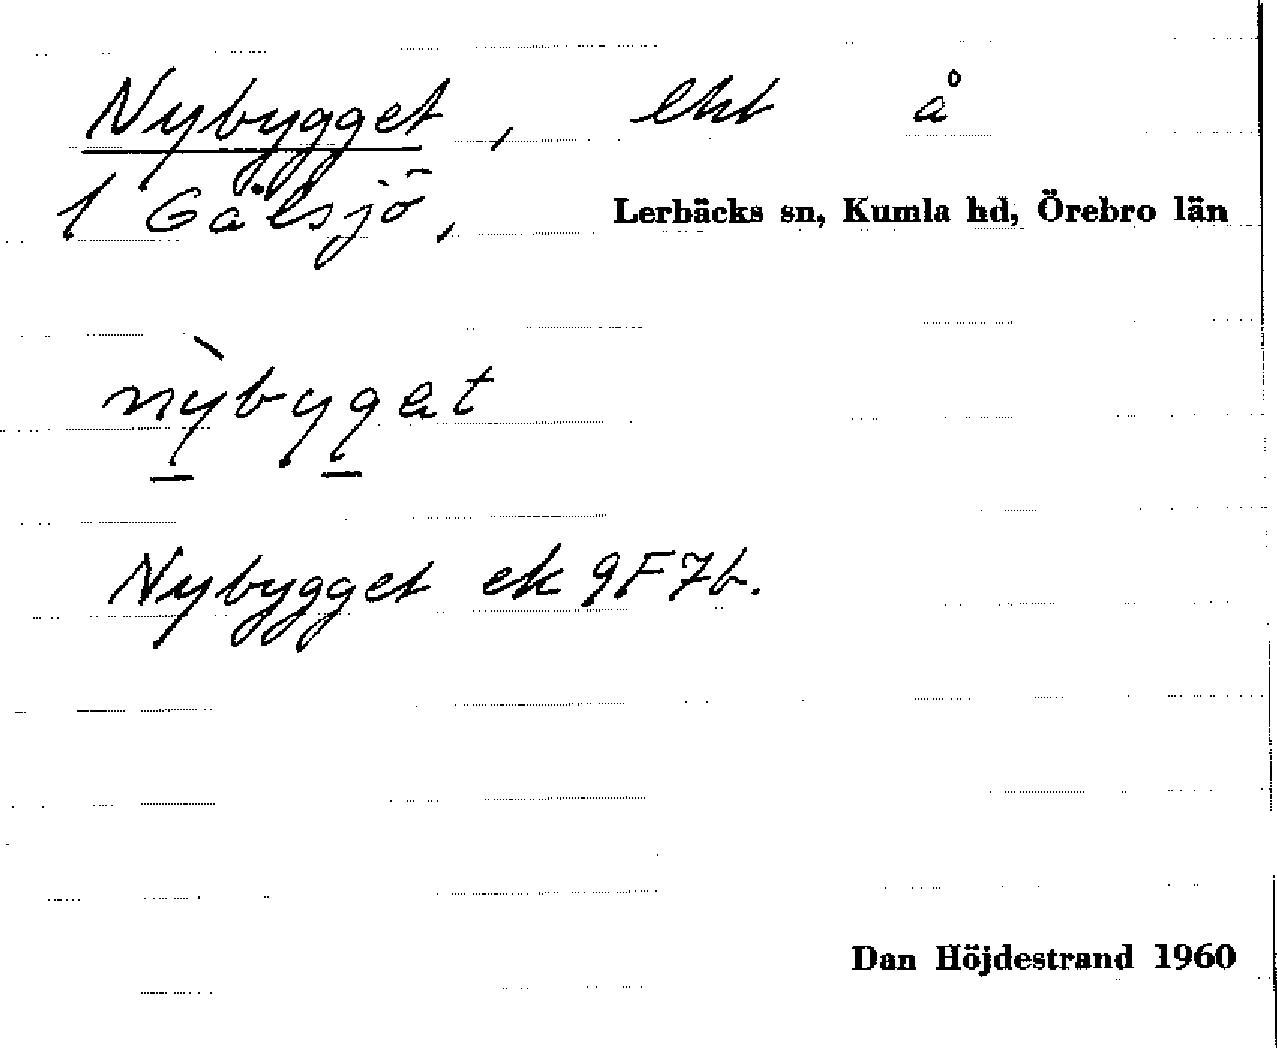 Nybygget, lht å
1 Gälsjö, Lerbäcks sn, Kumla hd, Örebro län
nỳbygat
Nybygget ek 9F7b.
Dan Höjdestrand 1960